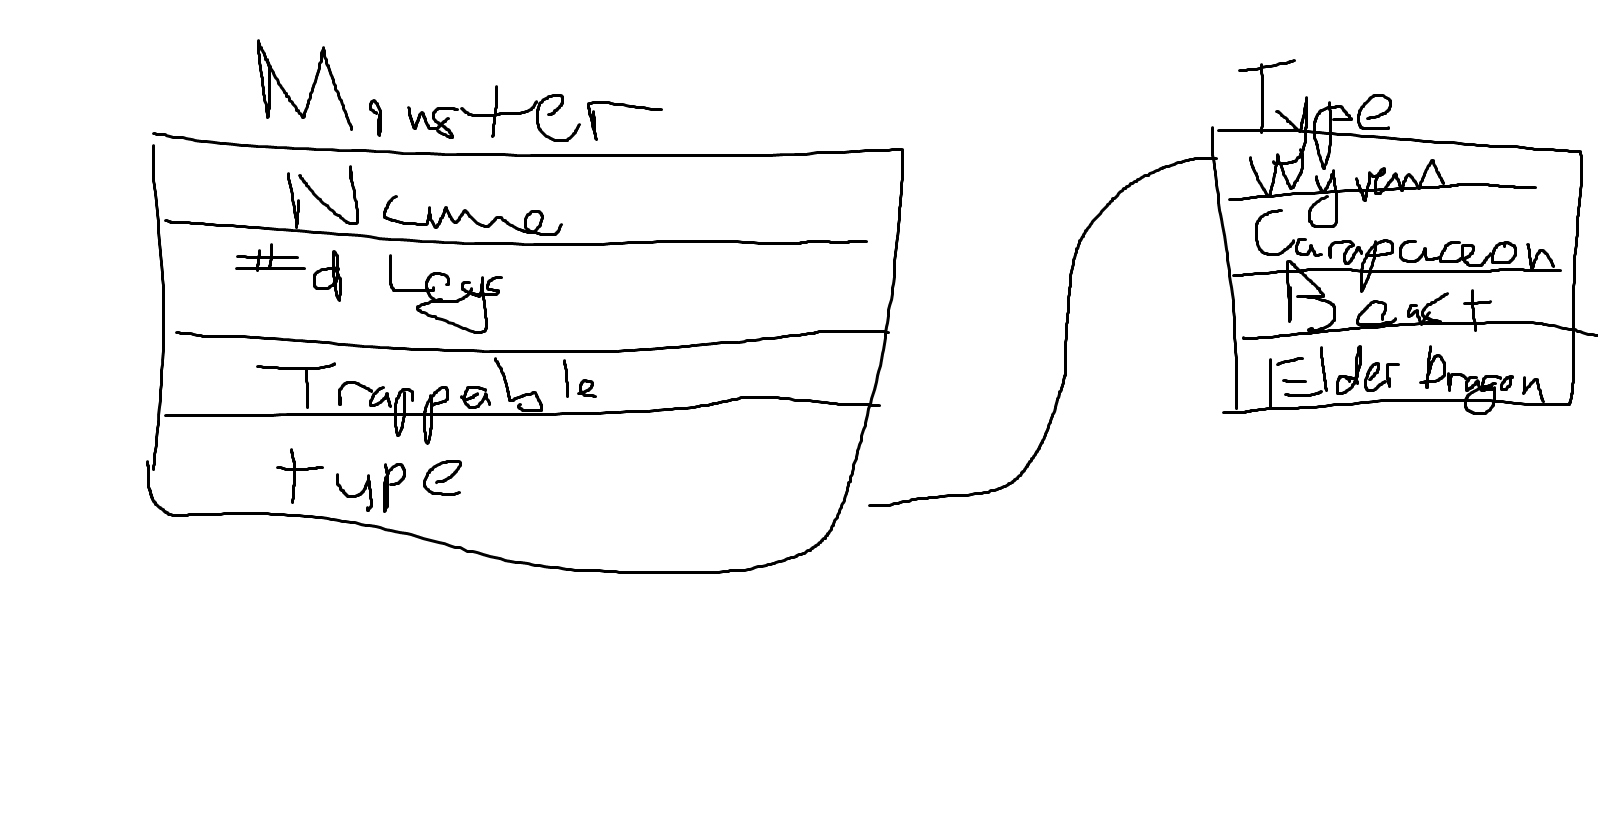 Minster
Name
# d Legs
Trappable
type
Type
Wyvern
Carapaceon
Beast
Elder Dragon